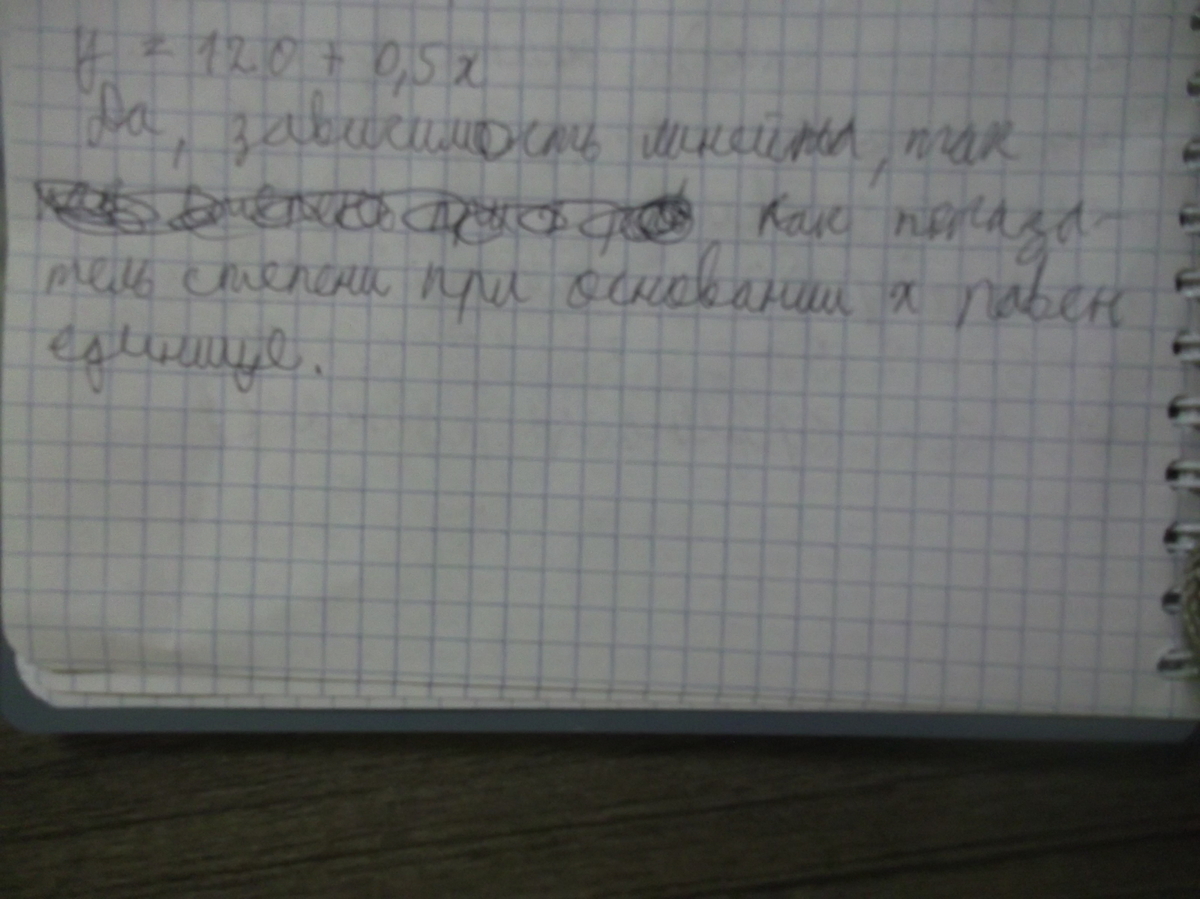 y = 120 + 0,5x
Да, зависимость линейна, так
как показа-
тель степени при основании x равен
единице.